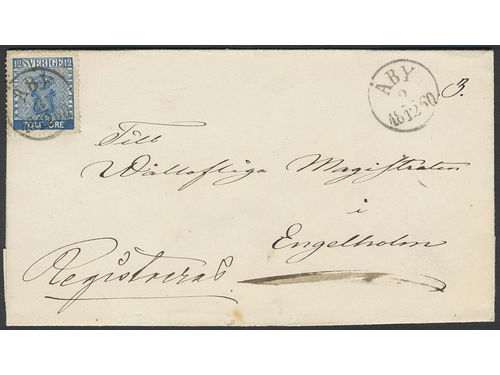 12 SVERIGE 12
TOLF ÖRE
ÅBY
ÅBY
9
12
1860
3.
Till
Wällofliga Magistraten
i
Engelholm
Registreras